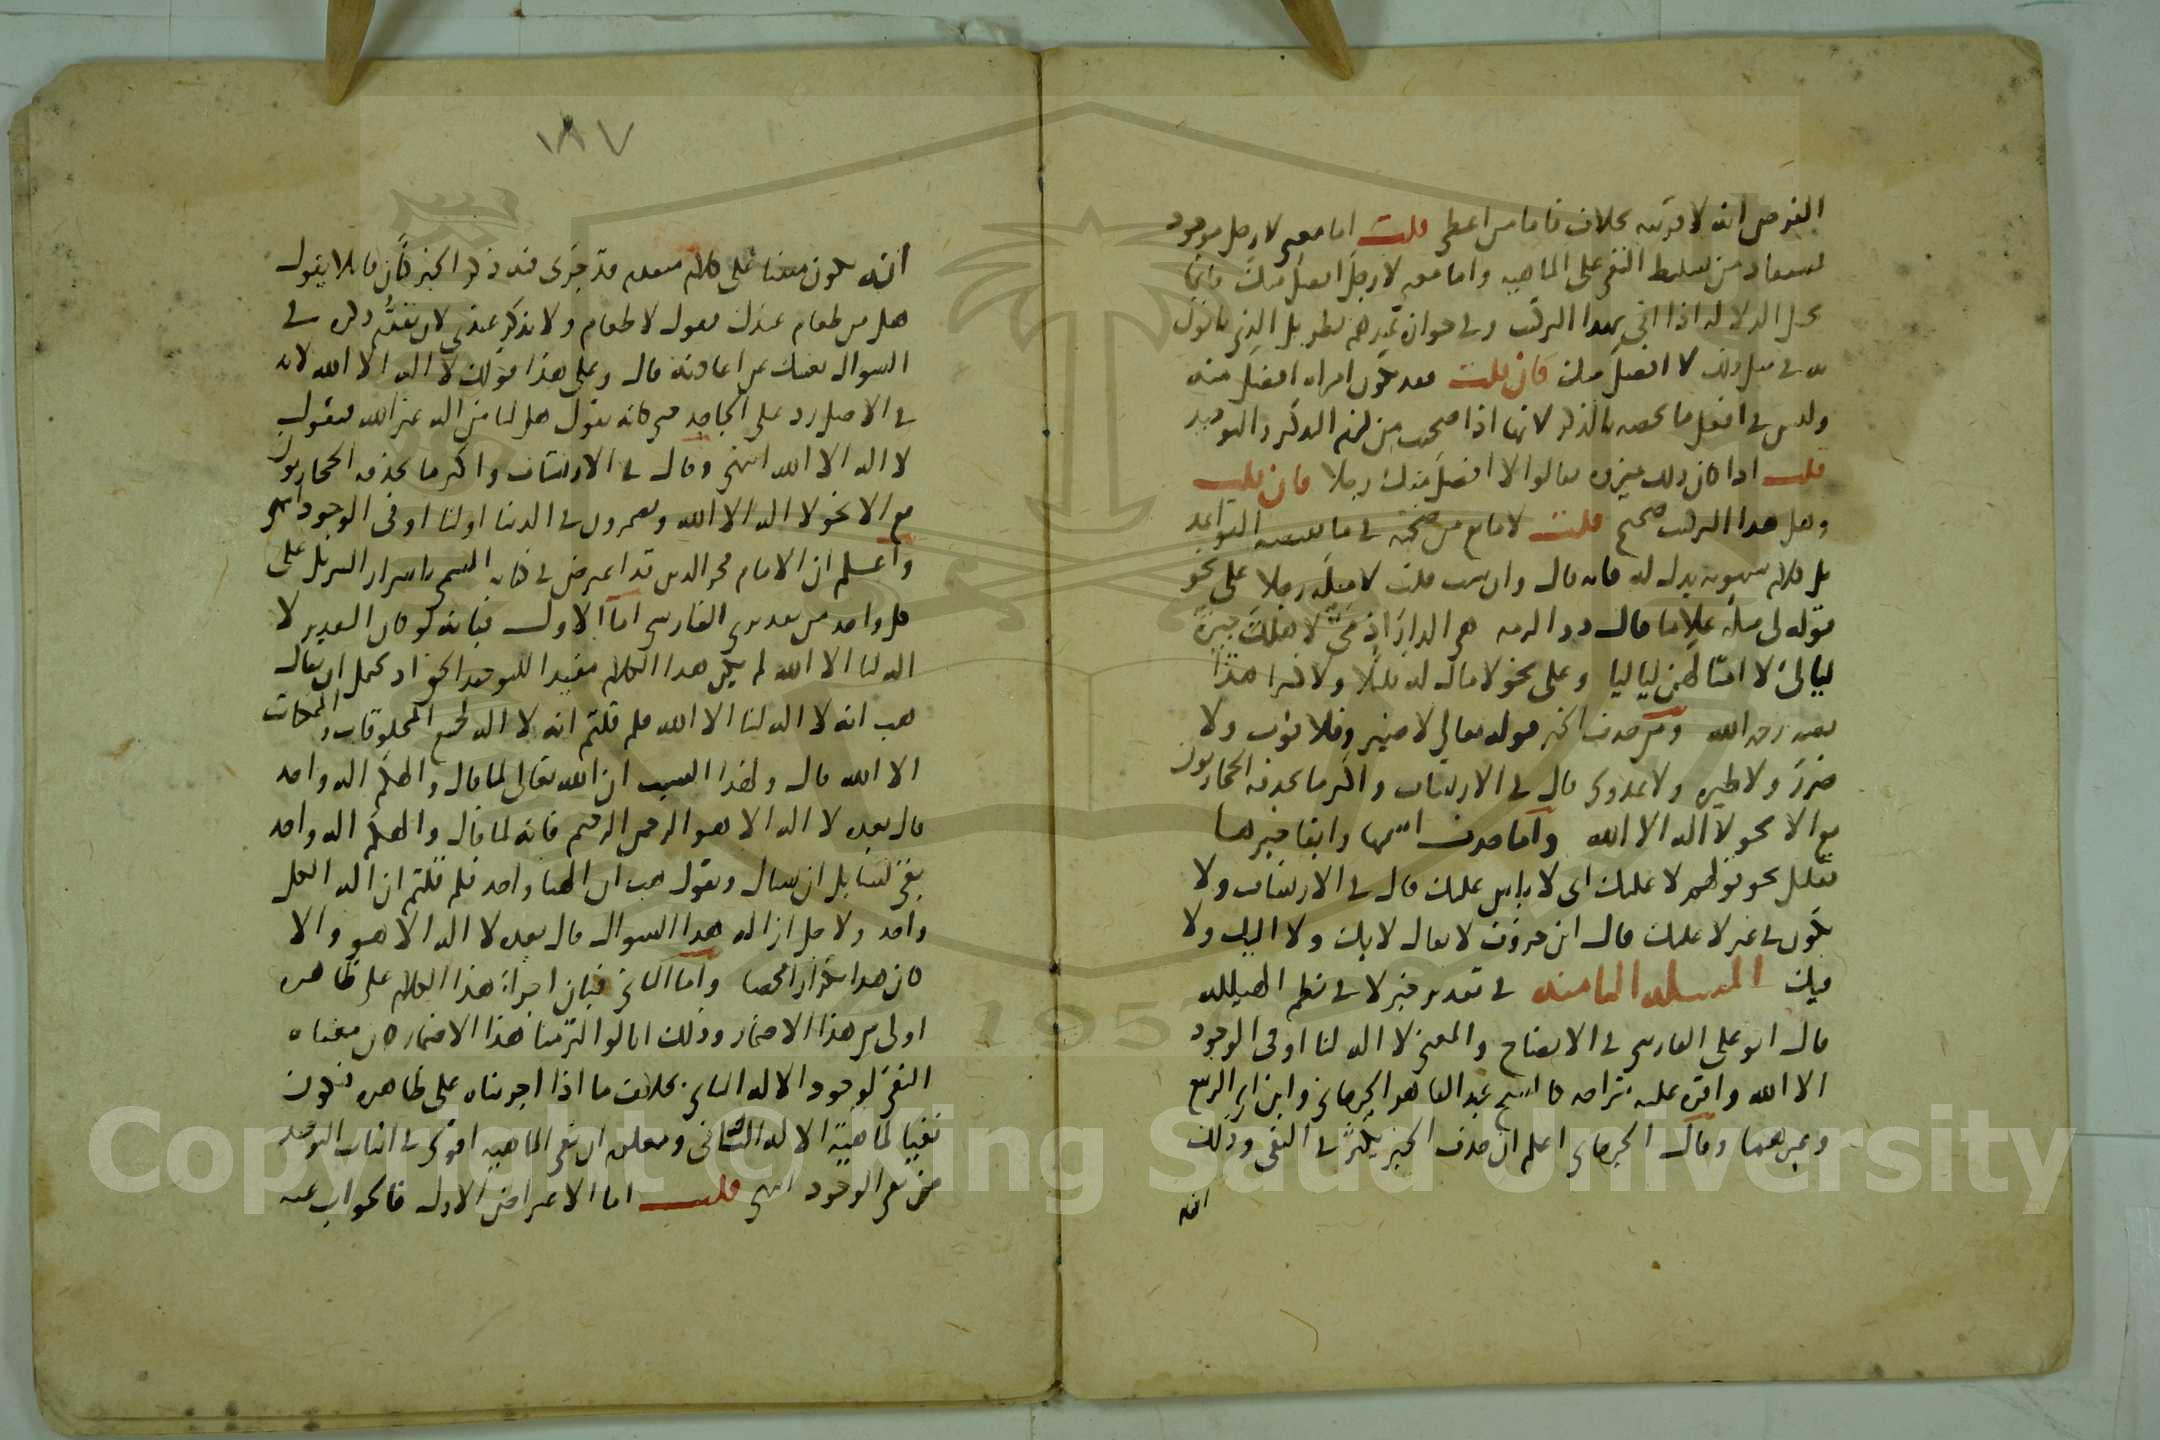 الغرض انه لا قرينه بخلاف قاما من اعطى قلت اما معنى لا رجل موجود
مستفاد من تسليط النفي على الماهيه واما معنى لا رجل افضل منك فانما
محل الدلاله اذا اتى بهذا التركيب وفي جواز تقديرهم بطويل الذي يأتون
به في مثل ذلك لا افضل منك فان قلت فقد تكون امراه افضل منه
وليس في افعل ما يخصه بالذكر لانها اذا صحبت من لزم التذكير والتوحيد
قلت اذا كان ذلك ميزوه فقالوا لا افضل منك رجلا فان قلت
وهل هذا التركيب صحيح قلت لا مانع من صحته في ما تقتضيه القواعد
بل كلام سيبويه يدل له فانه قال وان شئت قلت لا مثله رجلا على نحو
قوله لي مثله غلاما قال ذو الرمه هي الدار اذ مي لاهلك جيرة
ليالي لا امثالهن لياليا وعلى نحو لا ماله له قليلا ولا كثيرا هذا
نصه رحمه الله ومن حذف الخبر قوله تعالى لا ضير وفلا فوت ولا
ضرر ولا طيره ولا عدوى قال في الارتشاف واكثر ما يحذفه الحجازيون
مع الا نحو لا اله الا الله واما حذف اسمها وابقا خبرها
فقليل نحو قولهم لا عليك اي لا باس عليك قال في الارتشاف ولا
يكون في غير لا عليك قال ابن خروف لا يقال لا بك ولا اليك ولا
فيك المسئله الثامنه في تقدير خبر لا في نظم الهيلله
قال ابو علي الفارسي في الايضاح والمعنى لا اله لنا او في الوجود
الا الله واقره عليه شراحه كالشيخ عبد القاهر الجرجاني وابن ابي الربيع
وغيرهما وقال الجرجاني اعلم ان حذف الخبر يكثر في النفي وذلك
انه
١٨٧
انه يكون مبنيا على كلام متقدم قد جرى فيه ذكر الخبر كأن قائلا يقول
هل من طعام عندك فتقول لا طعام ولا تذكر عندي لان تقدم ذكره في
السوال يغنيك عن اعادته قال وعلى هذا قولك لا اله الا الله لانه
في الاصل رد على الجاحد فهي كانه يقول هل لنا من اله غير الله فتقول
لا اله الا الله انتهى وقال في الارتشاف واكثر ما يحذفه الحجازيون
مع الا نحو لا اله الا الله ويضمرون في الدنيا او لنا او في الوجود انتهى
واعلم ان الامام فخر الدين قد اعترض في كتابه المسمى باسرار التنزيل على
كل واحد من تقديري الفارسي اما الاول فبانه لو كان التقدير لا
اله لنا الا الله لم يكن هذا الكلام مفيدا للتوحيد الحق اذ يحتمل ان يقال
هب انه لا اله لنا الا الله فلم قلتم انه لا اله لجميع المخلوقات والممكنات
الا الله قال ولهذا السبب ان الله تعالى لما قال والهكم اله واحد
قال بعده لا اله الا هو الرحمن الرحيم فانه لما قال والهكم اله واحد
بقي لسائل ان يسال ويقول هب ان الهنا واحد فلم قلتم ان اله الكل
واحد ولاجل ازاله هذا السوال قال بعده لا اله الا هو والا
كان هذا تكرارا محضا واما الثاني فبان اجراء هذا الكلام على ظاهره
اولى من هذا الاضمار وذلك انا لو التزمنا هذا الاضمار كان معناه
النفي لوجود الاله الثاني بخلاف ما اذا اجريناه على ظاهره فيكون
نفيا لماهية الاله الثاني ومعلوم ان نفي الماهيه اقوى في اثبات التوحيد
من نفي الوجود انتهى قلت اما الاعتراض الاول فالجواب عنه
Copyright © King Saud University
1957